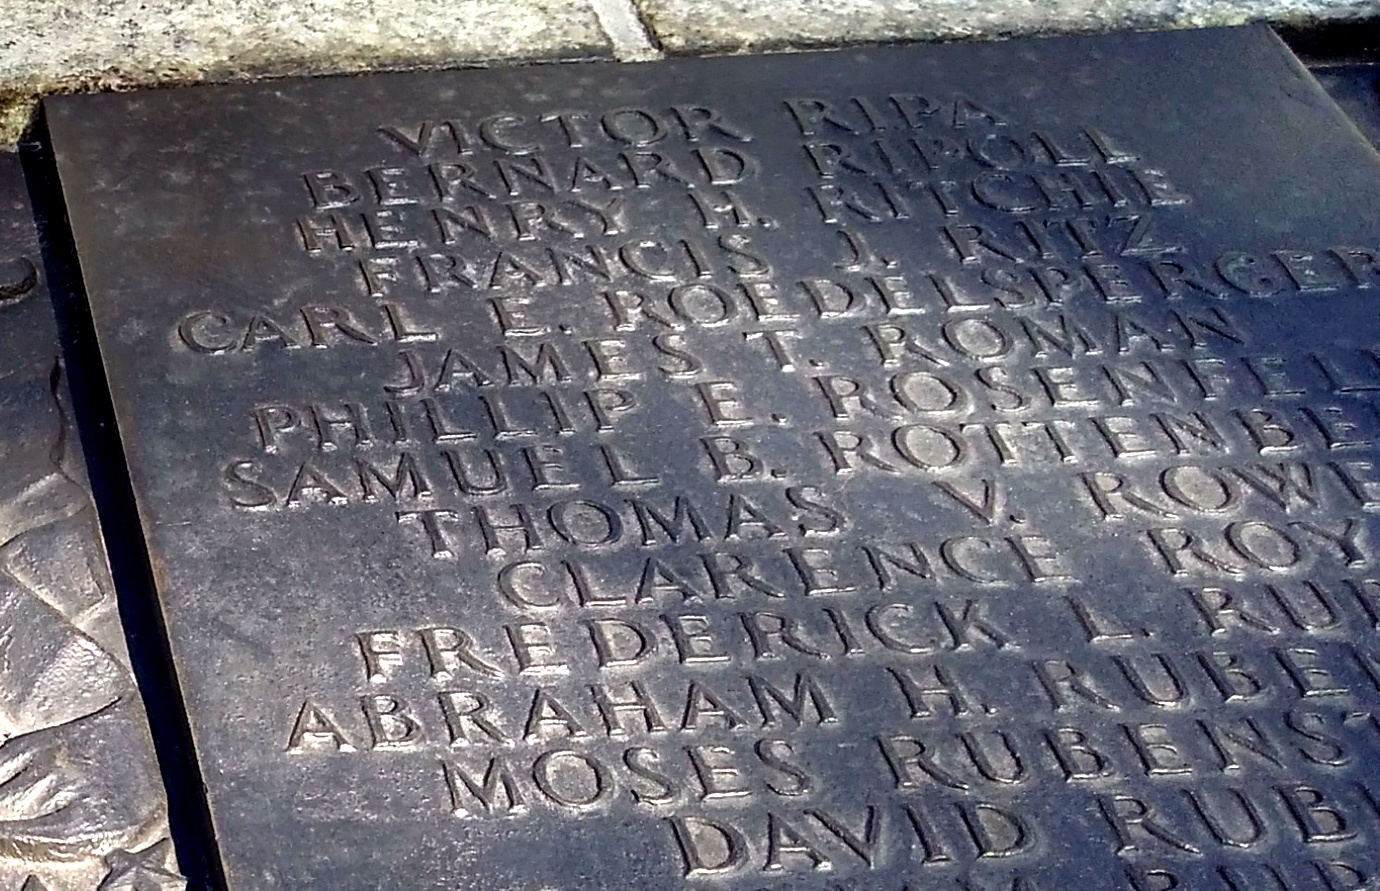 VICTOR RIPA
BERNARD RIPOLL
HENRY H. RITCHIE
FRANCIS J. RITZ
CARL E. ROEDELSPERGER
JAMES T. ROMAN
PHILLIP E. ROSENFEL
SAMUEL B. ROTTENBE
THOMAS V. ROWE
CLARENCE ROY
FREDERICK L. RUB
ABRAHAM H. RUBEN
MOSES RUBENST
DAVID RUBI